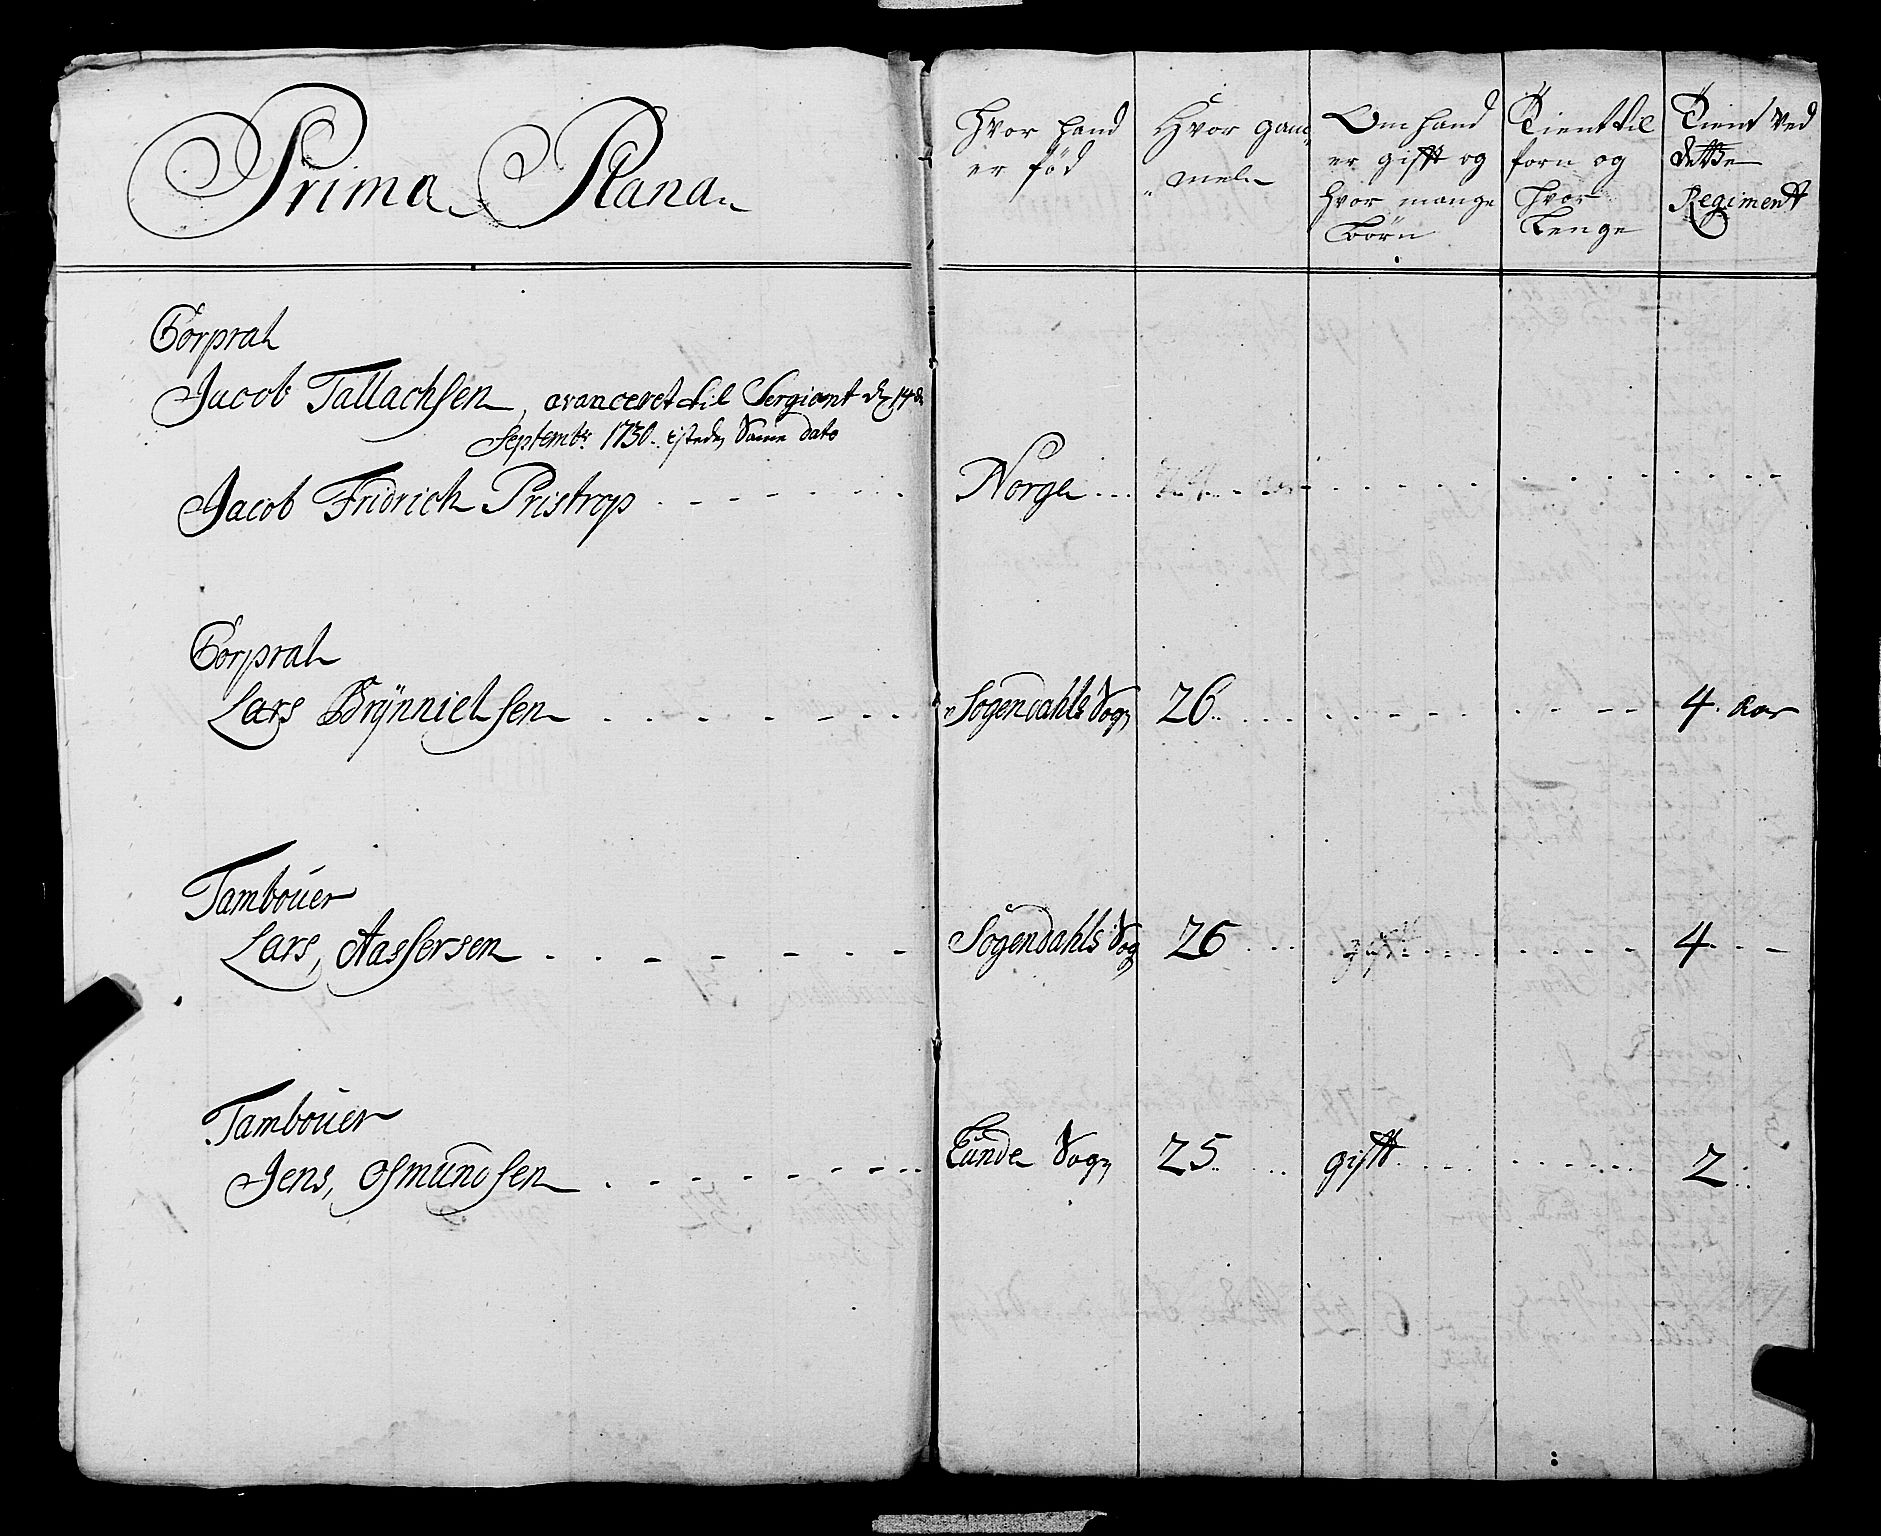 Prima Plana
Hvor hand er fød
Hvor gam„ „mel
Om hand er gifft og hvor mange Børn
Tient til forn og hvor Lenge
Tient ved dette Regiment
Corpral
Jacob Tallachsen, avanceret til Sergiant d 14de
Septembr: 1730. isteden Same dato
Jacob Fridrich Pristrop Norge
Corpral
Lars Brÿnnielsen Sogendahls Sogn 26 4 Aar
Tambouer
Lars, Aassersen Sogendahls Sogn 26 gifft 4
Tambouer
Jens, Osmundsen Lunde Sogn 25 gifft 2